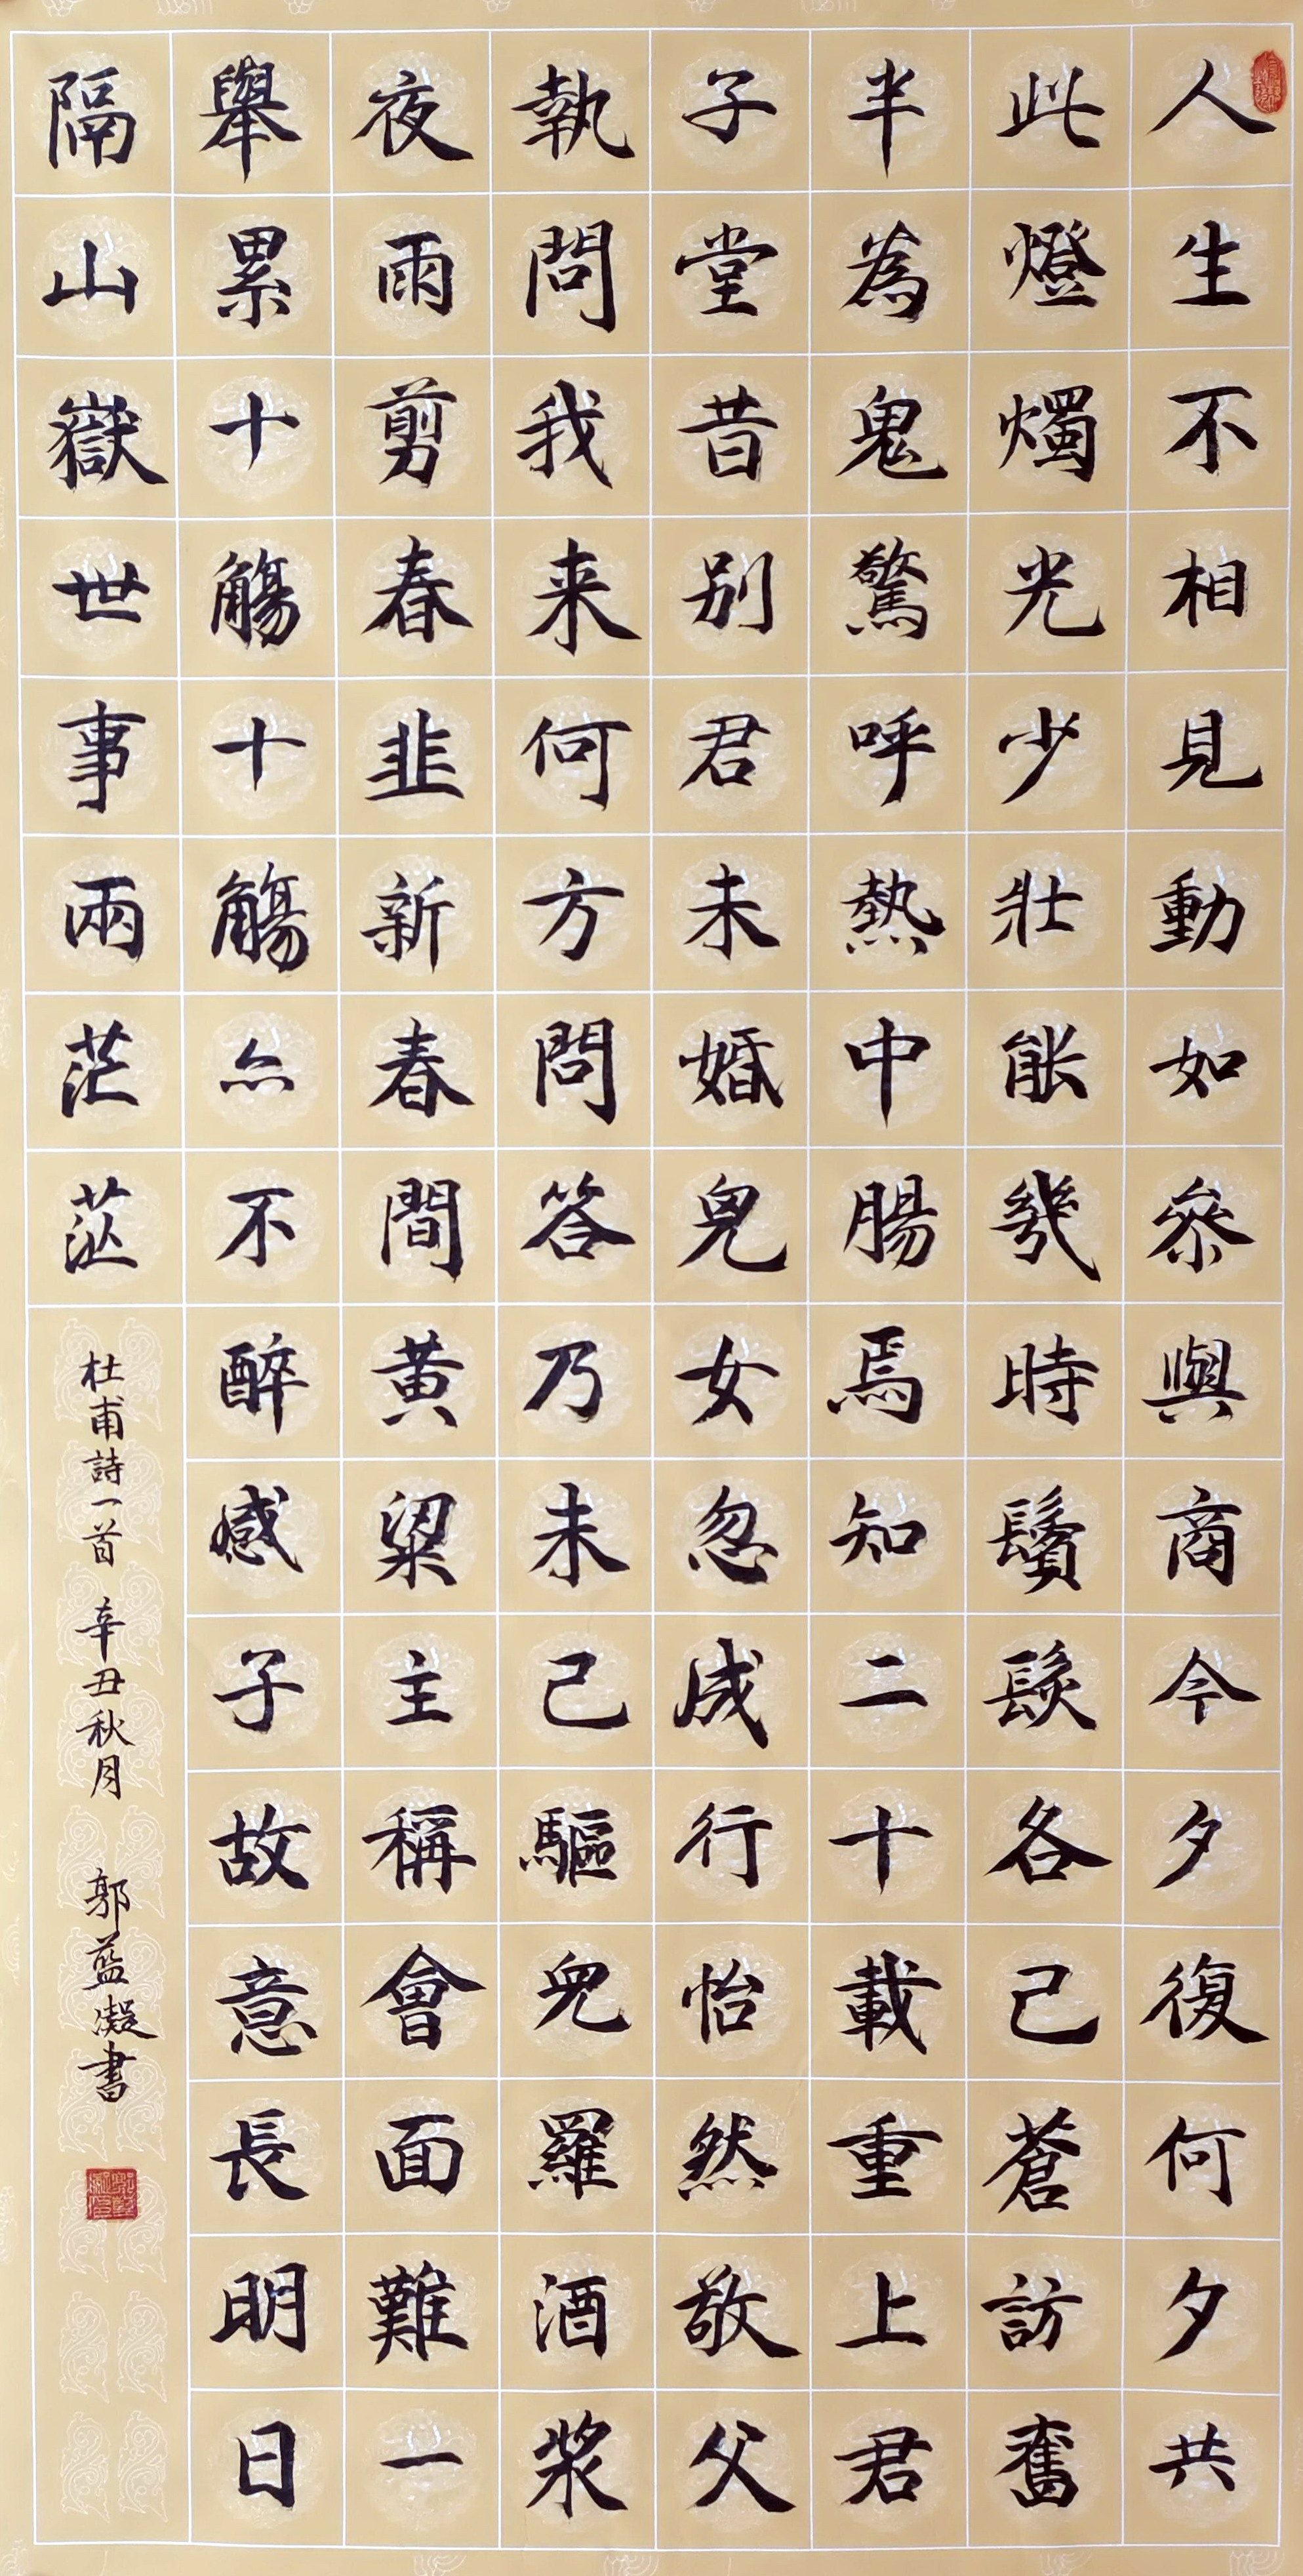 人生不相見動如參與商今夕復何夕共
此燈燭光少壯能幾時鬢髮各己蒼訪奮
半為鬼驚呼熱中腸焉知二十載重上君
子堂昔别君未婚兒女忽成行怡然敬父
執問我来何方問答乃未己驅兒羅酒浆
夜雨剪春韭新春間黄粱主稱會面難一
舉累十觴十觴亦不醉感子故意長明日
隔山嶽世事兩茫茫
杜甫詩一首 辛丑秋月 郭藍凝書